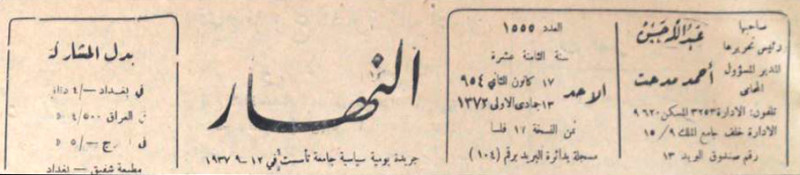 صاحبها
ورئيس تحريرها
عبدالله حسن
المدير المسؤول
المحامي
أحمد مدحت
تلفون: الادارة ٣٢٥٣ المسكن ٩٦٢٠
الادارة خلف جامع الملك ٩/ ١٥
رقم صندوق البريد ١٣
العدد ١٥٥٥
سنة الثامنة عشرة
الاحد
١٧ كانون الثاني ٩٥٤
١٣ جمادى الاولى ١٣٧٢
ثمن النسخة ١٧ فلسا
مسجلة بدائرة البريد برقم (١٠٤)
النهار
جريدة يومية سياسية جامعة تأسست في ١٢-٩-١٩٣٧
بدل المشاركة
في بغداد -/٤
العراق ٤/٥٠٠
-/٥
مطبعة شفيق - بغداد